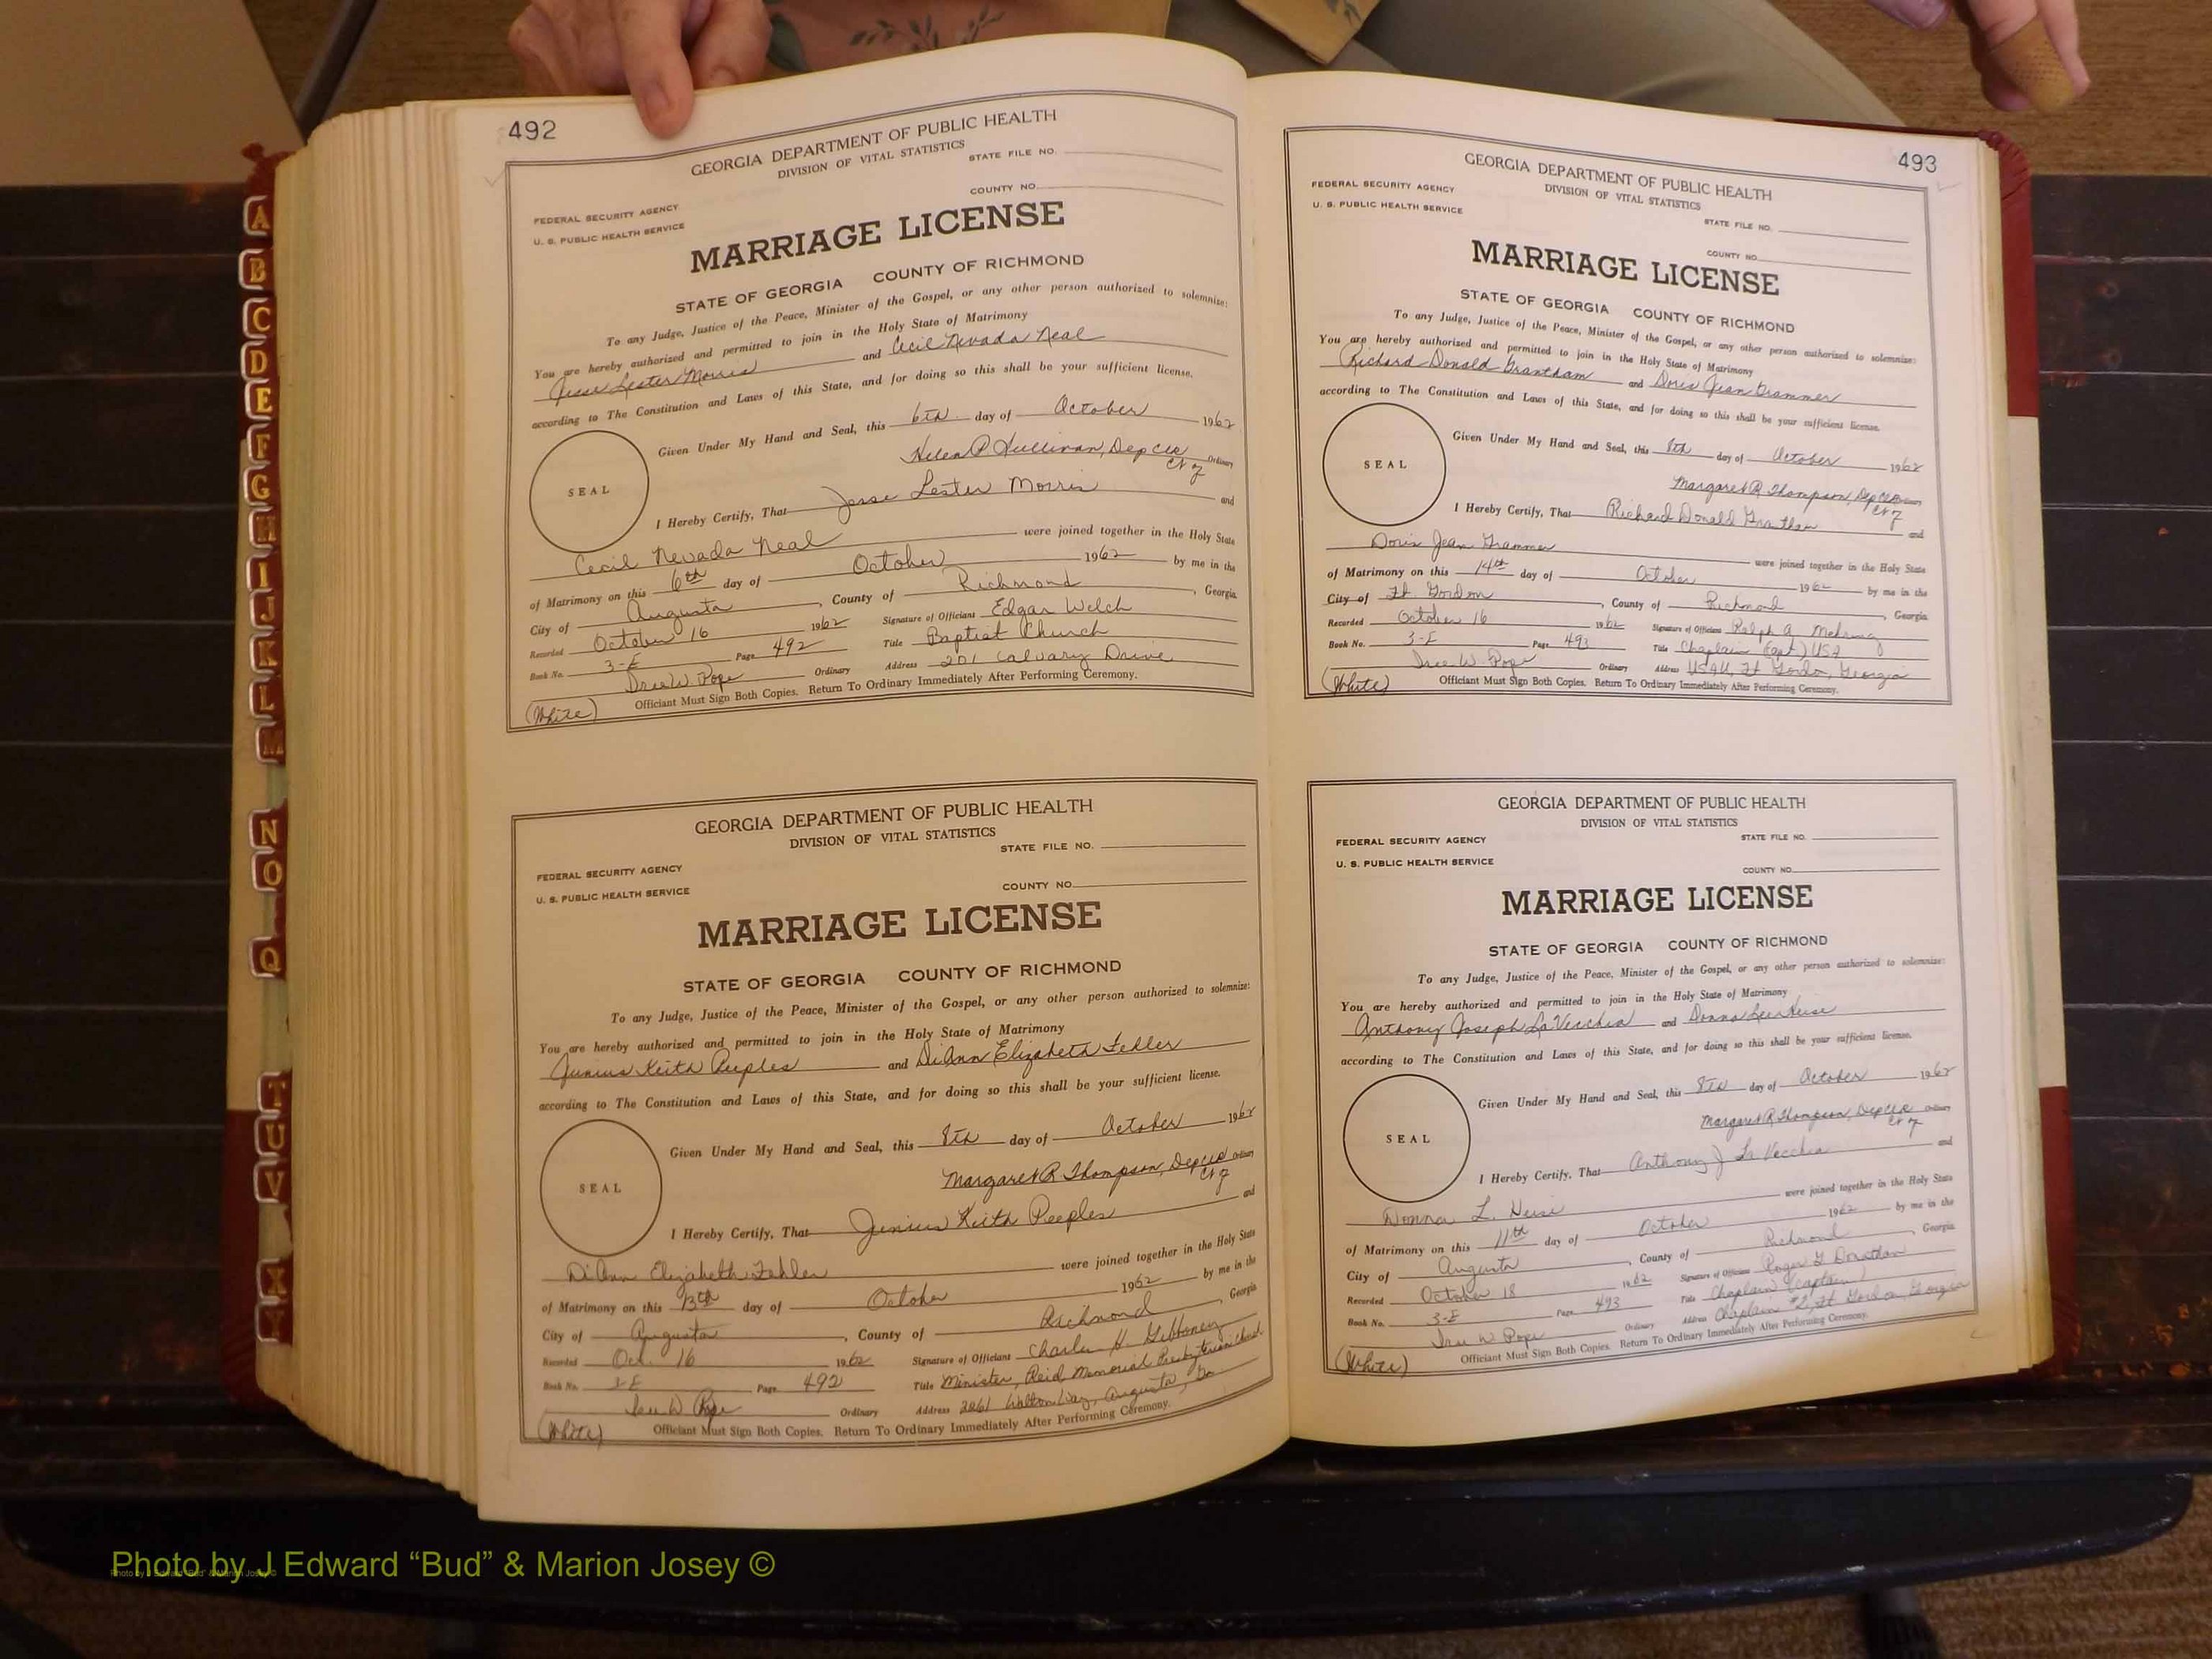 492
GEORGIA DEPARTMENT OF PUBLIC HEALTH
DIVISION OF VITAL STATISTICS
STATE FILE NO.
COUNTY NO.
FEDERAL SECURITY AGENCY
U. S. PUBLIC HEALTH SERVICE
MARRIAGE LICENSE
STATE OF GEORGIA COUNTY OF RICHMOND
To any Judge, Justice of the Peace, Minister of the Gospel, or any other person authorized to solemnize:
You are hereby authorized and permitted to join in the Holy State of Matrimony
Jesse Lester Morris and Cecil Nevada Neal
according to The Constitution and Laws of this State, and for doing so this shall be your sufficient license.
Given Under My Hand and Seal, this 6th day of October 1962
Helen P. Sullivan, Dep Clk Ordinary
SEAL
I Hereby Certify, That Jesse Lester Morris and
Cecil Nevada Neal were joined together in the Holy State
of Matrimony on this 6th day of October 1962 by me in the
City of Augusta, County of Richmond, Georgia
Recorded October 16 1962 Signature of Officiant Edgar Welch
Book No. 3-E Page 492 Title Baptist Church
W. Pope Ordinary Address 201 Calvary Drive
(White) Officiant Must Sign Both Copies. Return To Ordinary Immediately After Performing Ceremony.
GEORGIA DEPARTMENT OF PUBLIC HEALTH
DIVISION OF VITAL STATISTICS
STATE FILE NO.
FEDERAL SECURITY AGENCY
COUNTY NO.
U. S. PUBLIC HEALTH SERVICE
MARRIAGE LICENSE
STATE OF GEORGIA COUNTY OF RICHMOND
To any Judge, Justice of the Peace, Minister of the Gospel, or any other person authorized to solemnize:
You are hereby authorized and permitted to join in the Holy State of Matrimony
Junius Keith Peeples and DiAnn Elizabeth Fehler
according to The Constitution and Laws of this State, and for doing so this shall be your sufficient license.
Given Under My Hand and Seal, this 8th day of October 1962
Margaret R Thompson, Dep Clk Ordinary
SEAL
I Hereby Certify, That Junius Keith Peeples and
DiAnn Elizabeth Fehler were joined together in the Holy State
of Matrimony on this 13th day of October 1962 by me in the
City of Augusta, County of Richmond, Georgia
Recorded Oct. 16 1962 Signature of Officiant Charles H. Gibboney
Book No. 3-E Page 492 Title Minister, Reid Memorial Presbyterian Church
W. Pope Ordinary Address 2261 Walton Way, Augusta, Ga
(White) Officiant Must Sign Both Copies. Return To Ordinary Immediately After Performing Ceremony.
493
GEORGIA DEPARTMENT OF PUBLIC HEALTH
DIVISION OF VITAL STATISTICS
FEDERAL SECURITY AGENCY
U. S. PUBLIC HEALTH SERVICE
STATE FILE NO.
COUNTY NO.
MARRIAGE LICENSE
STATE OF GEORGIA COUNTY OF RICHMOND
To any Judge, Justice of the Peace, Minister of the Gospel, or any other person authorized to solemnize:
You are hereby authorized and permitted to join in the Holy State of Matrimony
Richard Donald Grantham and Doris Jean Grammer
according to The Constitution and Laws of this State, and for doing so this shall be your sufficient license.
Given Under My Hand and Seal, this 8th day of October 1962
Margaret R Thompson, Dep Clk Ordinary
SEAL
I Hereby Certify, That Richard Donald Grantham and
Doris Jean Grammer were joined together in the Holy State
of Matrimony on this 14th day of October 1962 by me in the
City of Ft Gordon, County of Richmond, Georgia
Recorded October 16 1962 Signature of Officiant Ralph A.
Book No. 3-E Page 493 Title Chaplain (Capt) USA
W. Pope Ordinary Address Ft Gordon, Georgia
(White) Officiant Must Sign Both Copies. Return To Ordinary Immediately After Performing Ceremony.
GEORGIA DEPARTMENT OF PUBLIC HEALTH
DIVISION OF VITAL STATISTICS
FEDERAL SECURITY AGENCY STATE FILE NO.
U. S. PUBLIC HEALTH SERVICE
COUNTY NO.
MARRIAGE LICENSE
STATE OF GEORGIA COUNTY OF RICHMOND
To any Judge, Justice of the Peace, Minister of the Gospel, or any other person authorized to solemnize:
You are hereby authorized and permitted to join in the Holy State of Matrimony
Anthony Joseph LaVecchia and Donna Lee Heise
according to The Constitution and Laws of this State, and for doing so this shall be your sufficient license.
Given Under My Hand and Seal, this 8th day of October 1962
Margaret R Thompson, Dep Clk Ordinary
SEAL
I Hereby Certify, That Anthony J LaVecchia and
Donna L. Heise were joined together in the Holy State
of Matrimony on this 11th day of October 1962 by me in the
City of Augusta, County of Richmond, Georgia
Recorded October 18 1962 Signature of Officiant Roger G
Book No. 3-E Page 493 Title Chaplain (Captain)
W. Pope Ordinary Address Chaplain #2, Ft Gordon, Georgia
(White) Officiant Must Sign Both Copies. Return To Ordinary Immediately After Performing Ceremony.
A
B
C
D
E
F
G
H
I
J
K
L
M
N
O
Q
T
U
V
X
Y
Photo by J Edward “Bud” & Marion Josey ©
Photo by J Edward “Bud” & Marion Josey ©